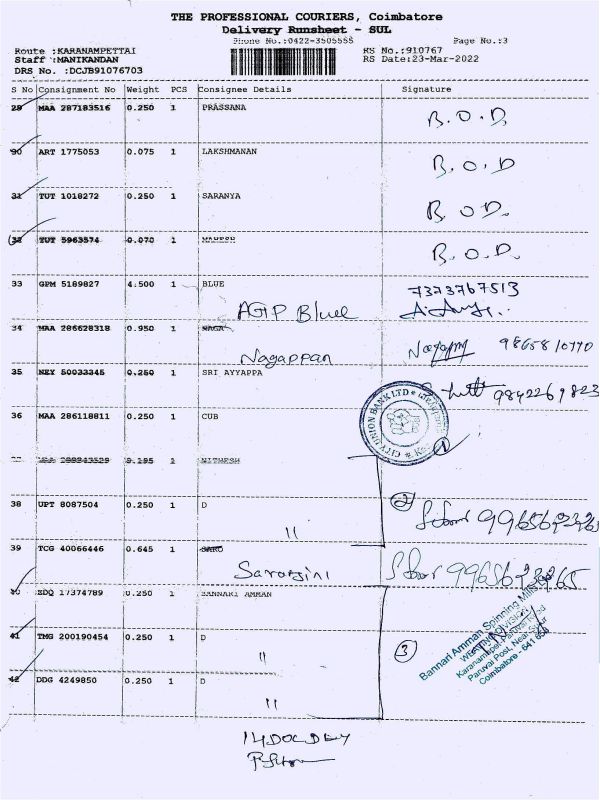 THE PROFESSIONAL COURIERS, Coimbatore
Delivery Runsheet - SUL
Phone No.:0422-3505555 Page No.:3
Route :KARANAMPETTAI RS No.:910767
Staff :MANIKANDAN RS Date:23-Mar-2022
DRS No. :DCJB91076703
S No Consignment No Weight PCS Consignee Details Signature
29 MAA 287183516 0.250 1 PRASSANA R.O.D.
30 ART 1775053 0.075 1 LAKSHMANAN R.O.D
31 TUT 1018272 0.250 1 SARANYA R.O.D.
32 TUT 5963574 0.070 1 MAHESH R.O.D.
33 GPM 5189827 4.500 1 BLUE 7373767513
AGP Bluee
34 MAA 286628318 0.950 1 NAGA
Nagappan
35 NEY 50033345 0.250 1 SRI AYYAPPA 9842269823
36 MAA 286118811 0.250 1 CUB
CITY UNION BANK LTD
1
1 NITHESH
38 UPT 8087504 0.250 1 D 2
"
39 TCG 40066446 0.645 1 SARO
Sarojini
40 ZDQ 17374789 0.250 1 BANNARI AMMAN
41 TMG 200190454 0.250 1 D 3
"
Bannari Amman Spinning Mills
WEAVING DIVISION
Karanampet-Paruvai Road
Paruvai Post, Near Sulur
Coimbatore - 641 658
42 DDG 4249850 0.250 1 D
"
14DOC DEY